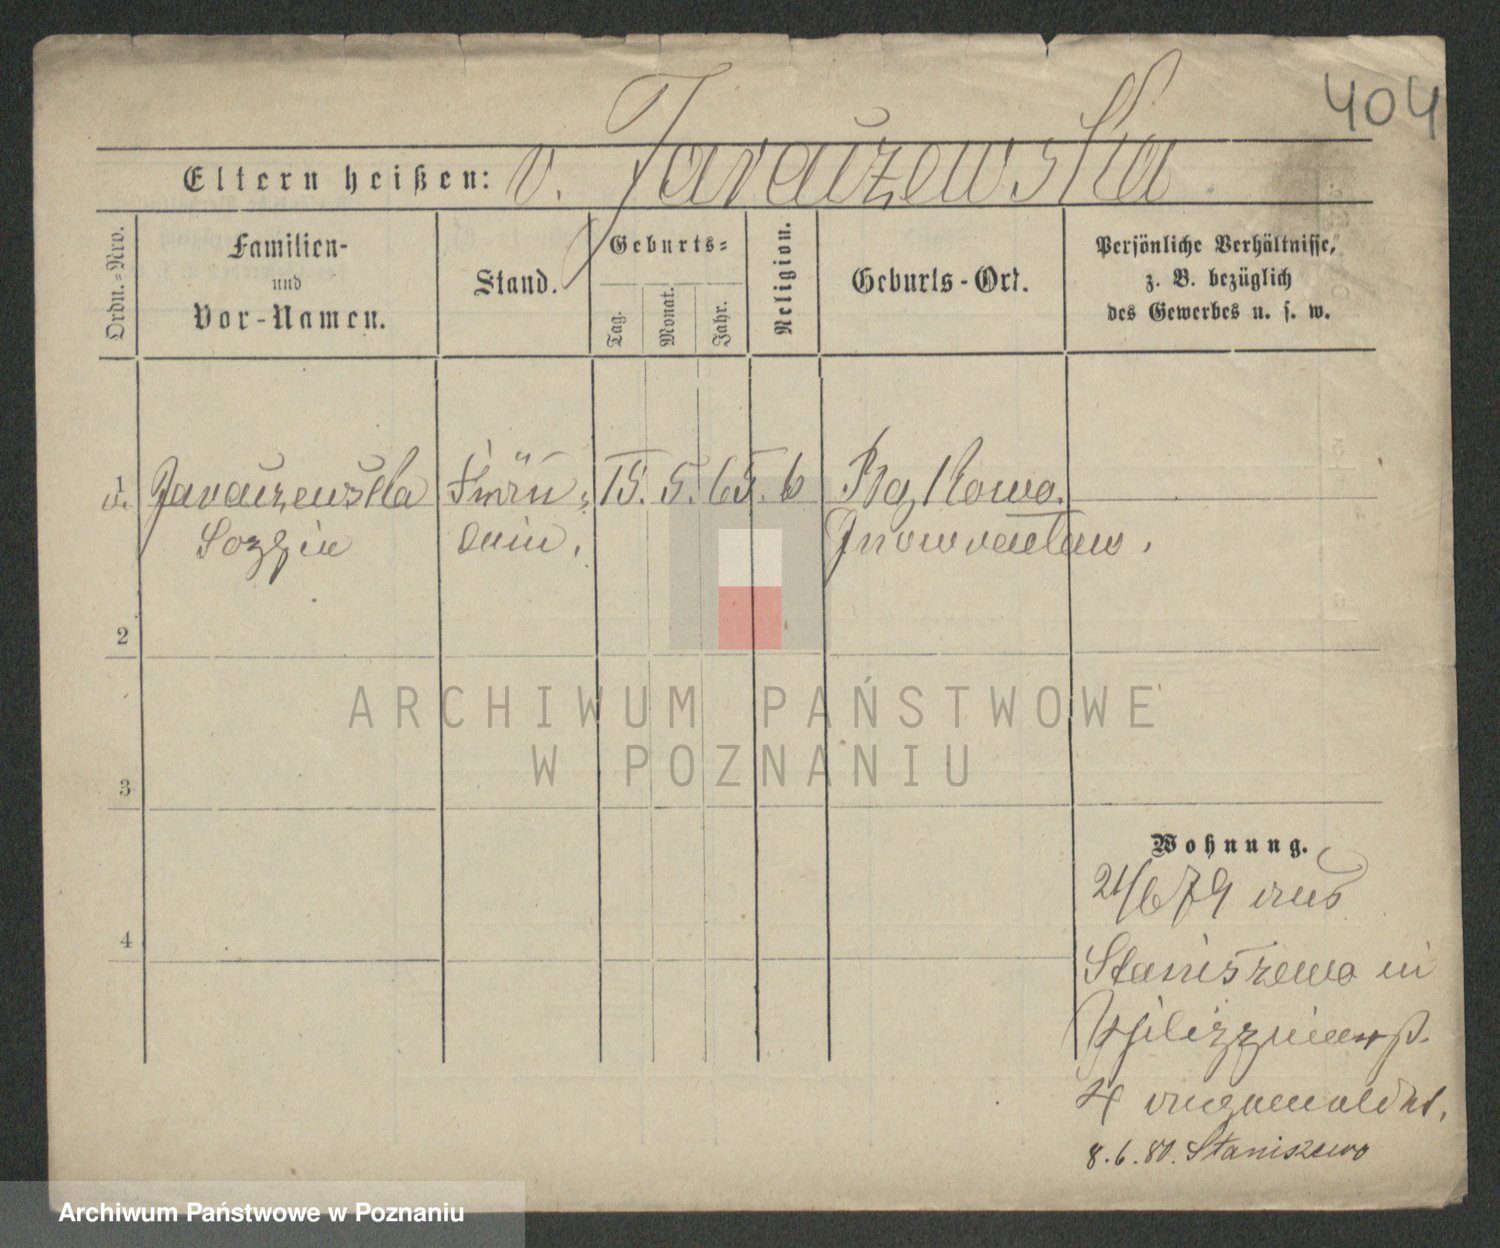 404
Eltern heißen: v. Jarauzewska
Ordn.-Nro.
Familien-
und
Vor-Namen.
Stand.
Geburts-
Tag.
Monat.
Jahr.
Religion.
Geburts-Ort.
Persönliche Verhältnisse,
z. B. bezüglich
des Gewerbes u. s. w.
1
v. Jarauzewska 15. 5. 65.
Inowraclaw.
2
ARCHIWUM PAŃSTWOWE
W POZNANIU
3
Wohnung.
21/6 79 aus
4
Staniszewo in
4 angemeldet.
8.6.80. Staniszewo
Archiwum Państwowe w Poznaniu